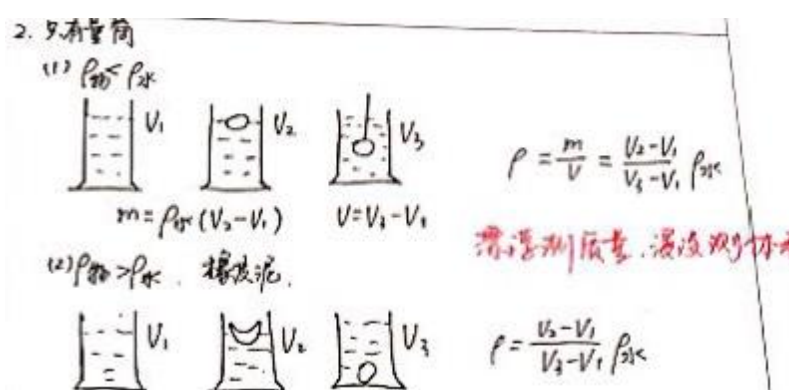 2. 只有量筒
(1) ρ物<ρ水
V₁ V₂ V₃
ρ = m/V = (V₂-V₁)/(V₃-V₁) ρ水
m = ρ水(V₂-V₁) V=V₃-V₁
漂浮测质量,浸没测体
(2) ρ物>ρ水. 橡皮泥.
V₁ V₂ V₃
ρ = (V₂-V₁)/(V₃-V₁) ρ水